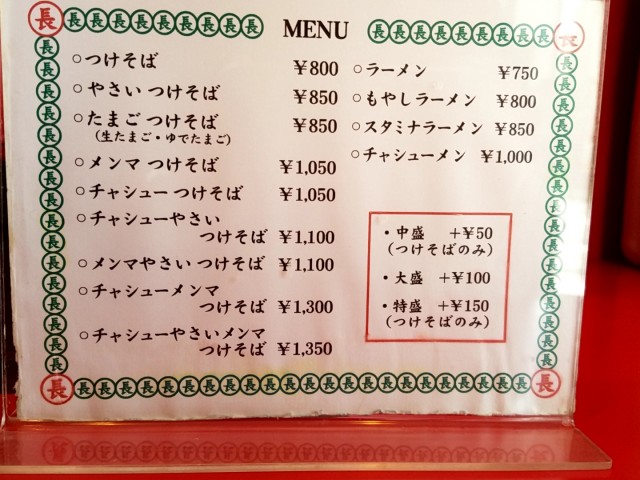 MENU
○つけそば ¥800
○やさい つけそば ¥850
○たまご つけそば ¥850
(生たまご・ゆでたまご)
○メンマ つけそば ¥1,050
○チャシュー つけそば ¥1,050
○チャシューやさい
つけそば ¥1,100
○メンマやさい つけそば ¥1,100
○チャシューメンマ
つけそば ¥1,300
○チャシューやさいメンマ
つけそば ¥1,350
○ラーメン ¥750
○もやしラーメン ¥800
○スタミナラーメン ¥850
○チャシューメン ¥1,000
・中盛 +¥50
(つけそばのみ)
・大盛 +¥100
・特盛 +¥150
(つけそばのみ)
長